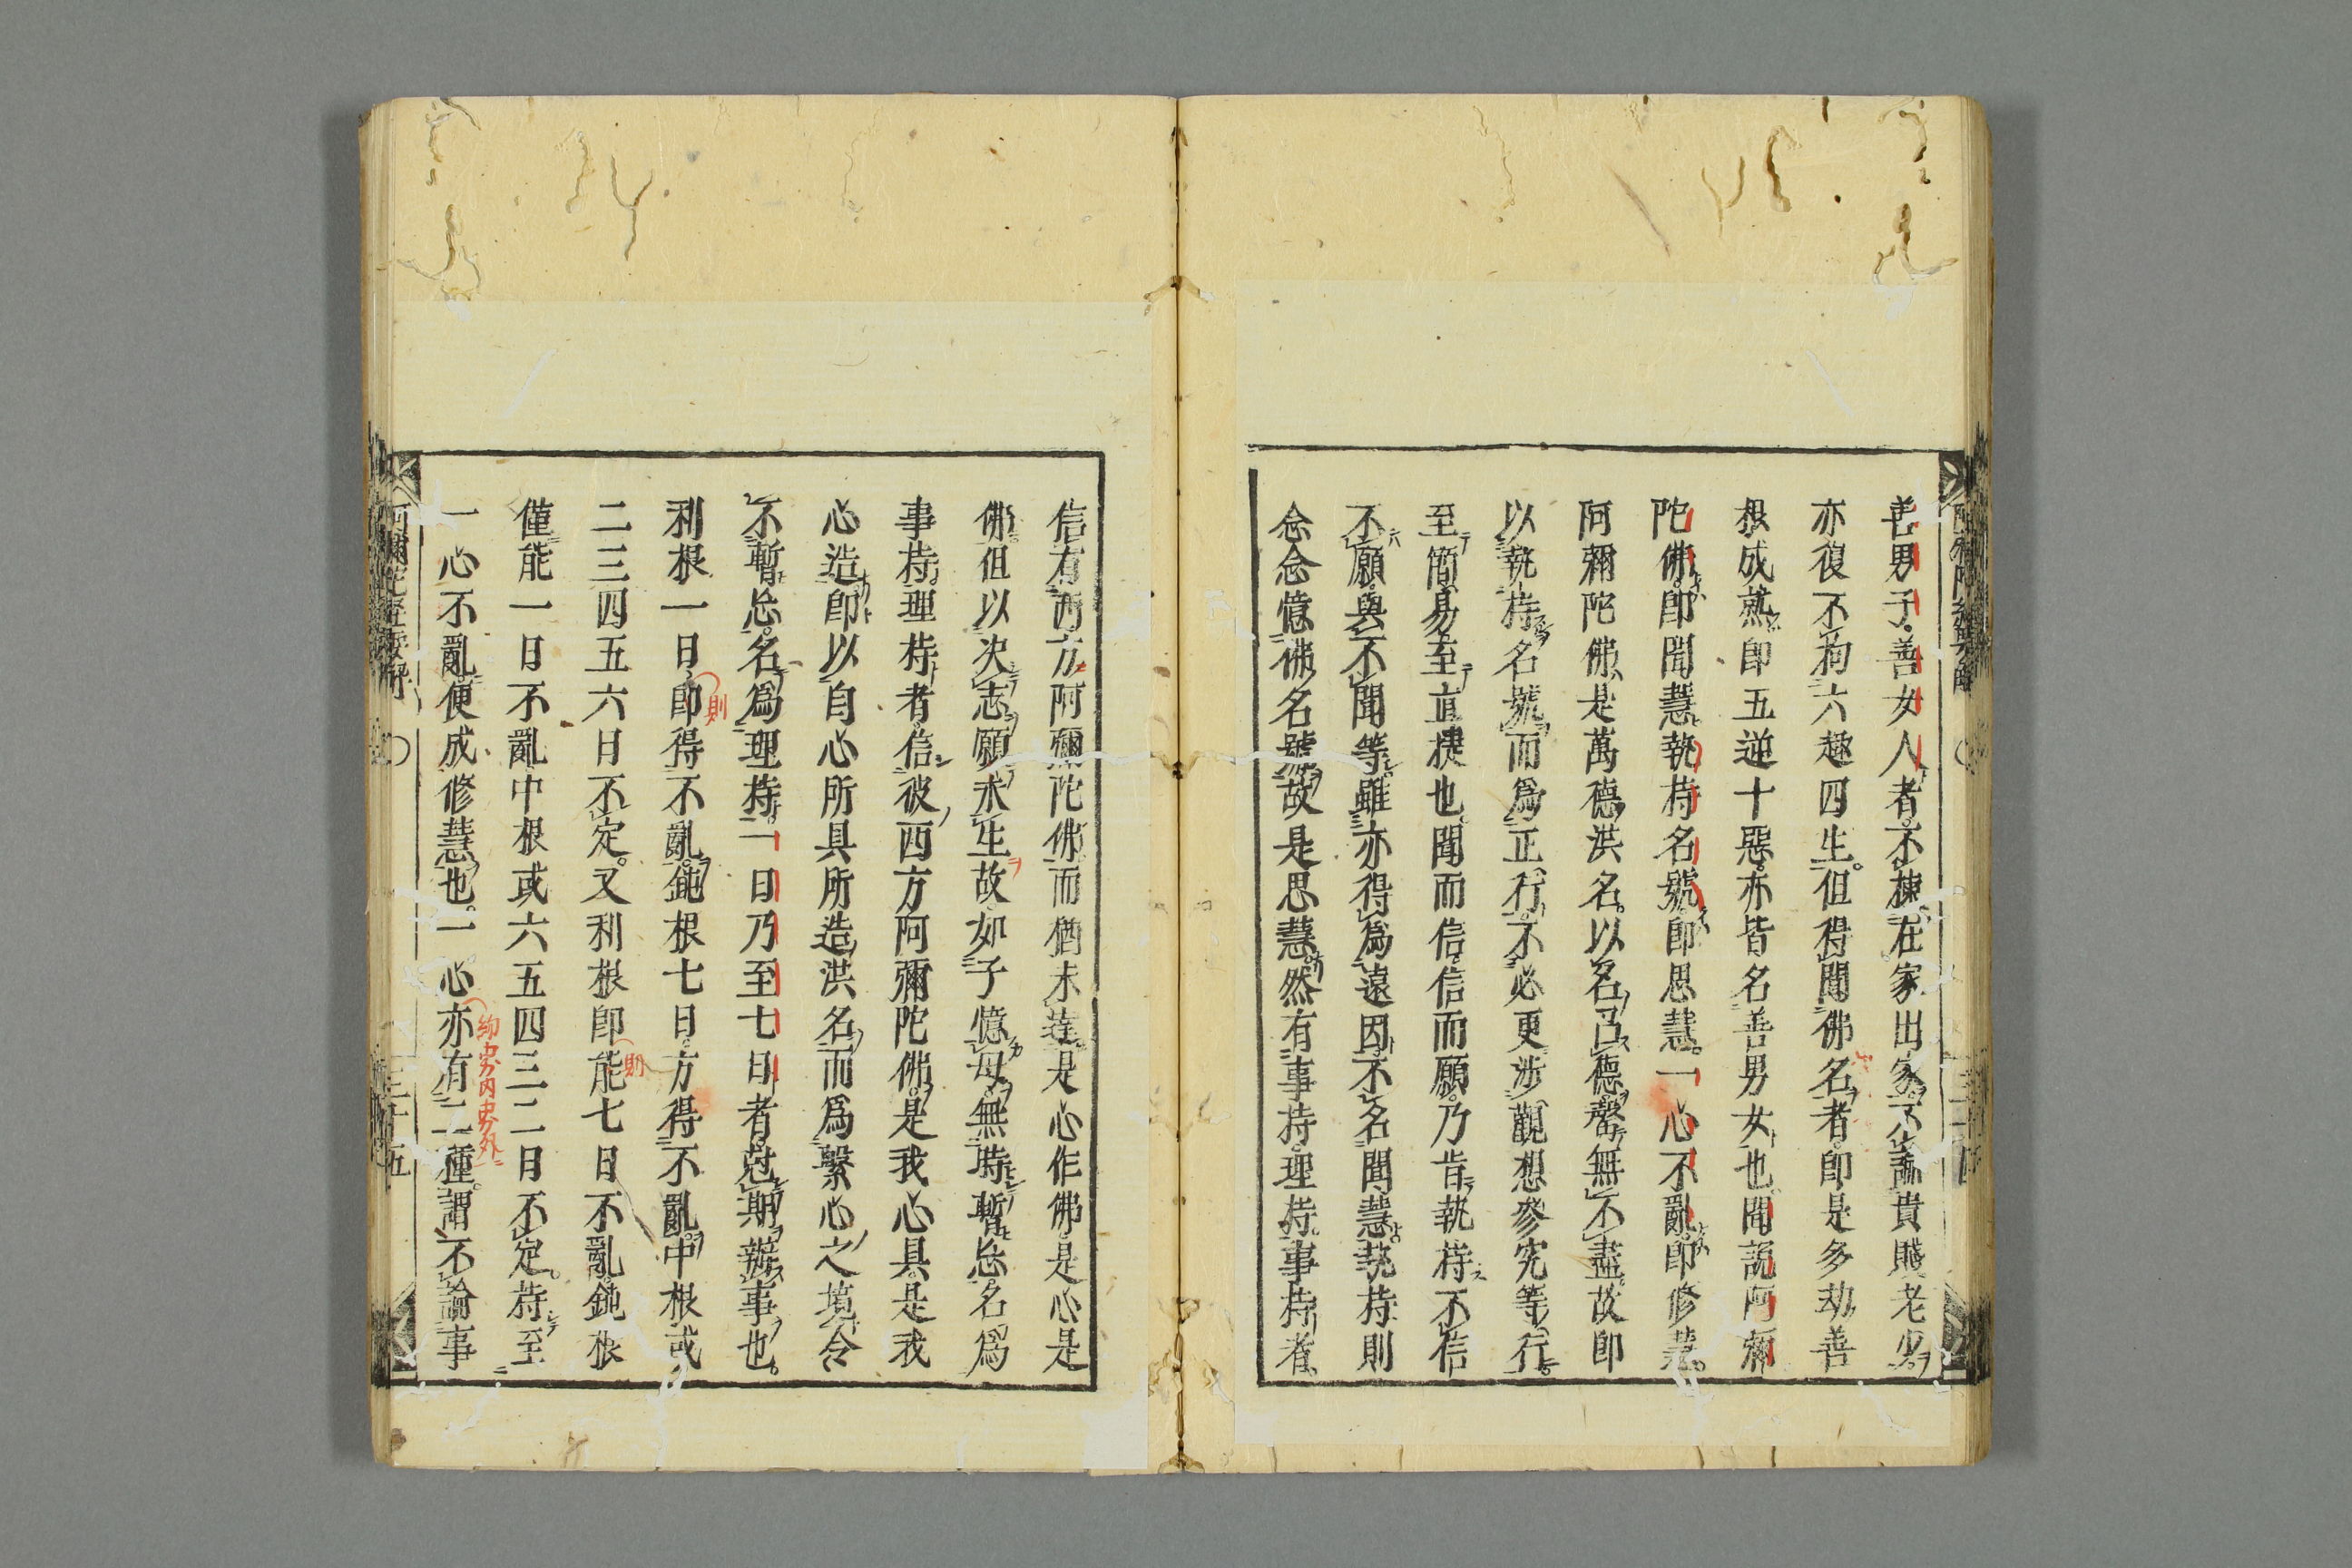 善男子善女人者不揀在家出家不論貴賤老少
亦復不拘六趣四生但得聞佛名者即是多劫善
根成熟即五逆十惡亦皆名善男女也聞說阿彌
陀佛即聞慧執持名號即思慧一心不亂即修慧
阿彌陀佛是萬德洪名以名召德罄無不盡故即
以執持名號而爲正行不必更涉觀想參究等行
至簡易至直捷也聞而信信而願乃肯執持不信
不願與不聞等雖亦得爲遠因不名聞慧執持則
念念憶佛名號故是思慧然有事持理持事持者
信有西方阿彌陀佛而猶未達是心作佛是心是
佛但以決志願求生故如子憶母無時暫忘名爲
事持理持者信彼西方阿彌陀佛是我心具是我
心造即以自心所具所造洪名而爲繫心之境令
不暫忘名爲理持一日乃至七日者尅期辦事也
利根一日即得不亂鈍根七日方得不亂中根或
則
二三四五六日不定又利根即能七日不亂鈍根
則
僅能一日不亂中根或六五四三二日不定持至
一心不亂便成修慧也一心亦有二種謂不論事
阿彌陀經要解
三十五